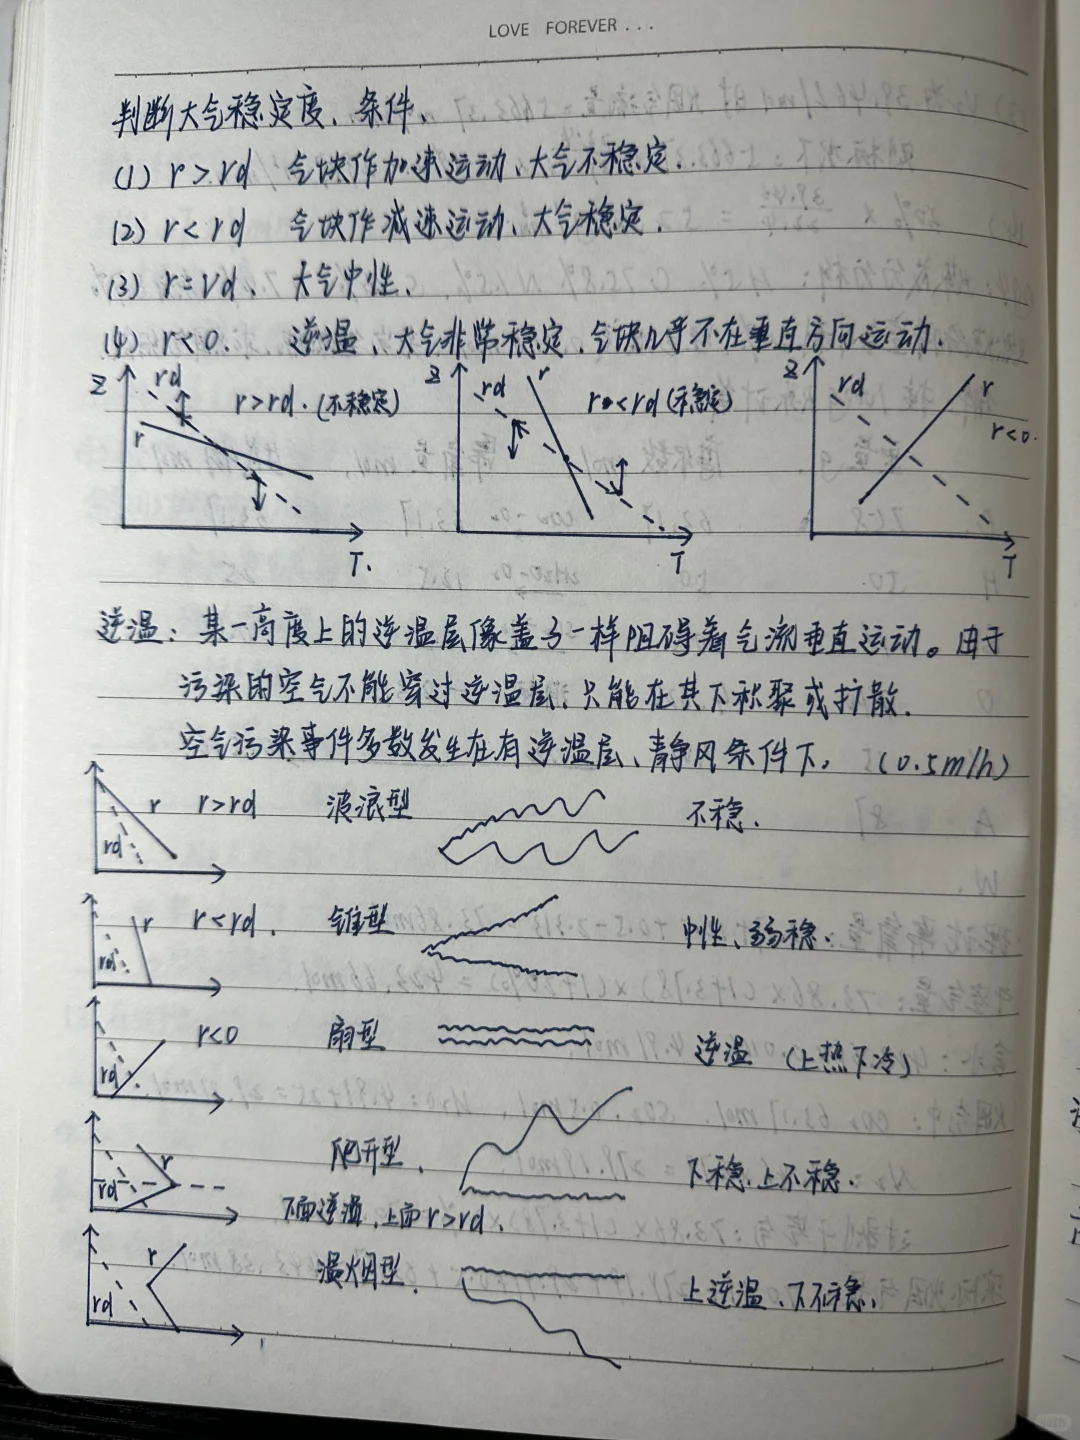 LOVE FOREVER ...
判断大气稳定度、条件、
(1) r>rd 气块作加速运动、大气不稳定.
(2) r<rd 气块作减速运动、大气稳定.
(3) r=rd、 大气中性、
(4) r<0. 逆温、大气非常稳定、气块几乎不在垂直方向运动.
Z rd r r>rd.(不稳定) T.
Z rd r r<rd (稳定) T
Z rd r r<0. T
逆温:某一高度上的逆温层像盖子一样阻碍着气流垂直运动。由于
污染的空气不能穿过逆温层、只能在其下积聚或扩散.
空气污染事件多数发生在有逆温层、静风条件下。(0.5m/h)
r rd r>rd 波浪型 不稳.
r rd r<rd. 锥型 中性、弱稳.
rd r<0 扇型 逆温 (上热下冷)
r rd 爬升型. 下稳.上不稳.
下面逆温,上面r>rd.
r rd 温烟型. 上逆温、下不稳、